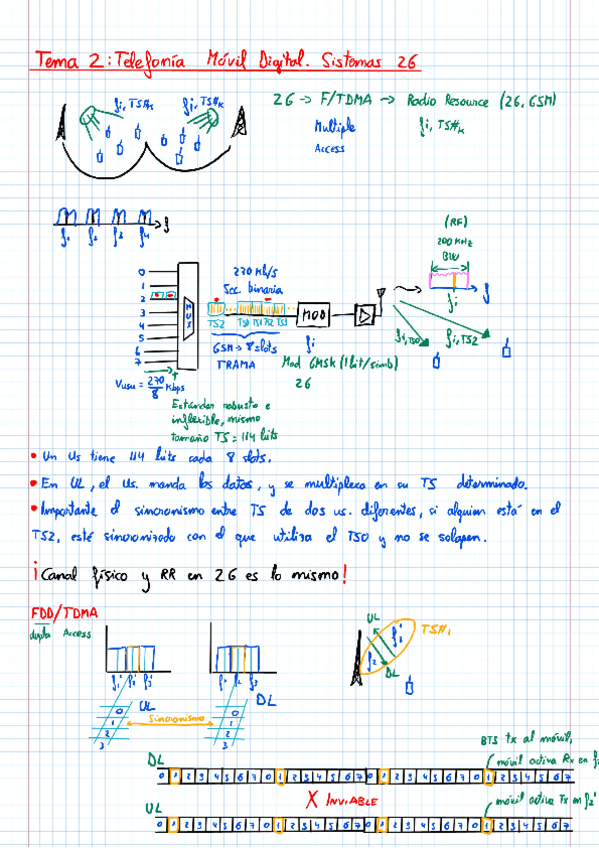 Tema 2: Telefonía Móvil Digital. Sistemas 2G
fi, TS#k
fi, TS#k
2G -> F/TDMA -> Radio Resource (2G, GSM)
Multiple
Access
fi, TS#k
f1 f2 f3 f4 f
(RF)
200 KHz
BW
0
1
2
3
4
5
6
7
MUX
270 Kb/s
Sec. binaria
TS2 TS0 TS1 TS2 TS3
GSM -> 8 slots
TRAMA
MOD
fi
Mod GMSK (1bit/simb)
2G
fi
f
fi, TS0
fi, TS2
Vusu = 270/8 Kbps
Estándar robusto e
inflexible, mismo
tamaño TS = 114 bits
• Un Us tiene 114 bits cada 8 slots.
• En UL, el us. manda los datos, y se multiplexa en su TS determinado.
• Importante el sincronismo entre TS de dos us. diferentes, si alguien está en el
TS2, esté sincronizado con el que utiliza el TS0 y no se solapen.
¡Canal físico y RR en 2G es lo mismo!
FDD/TDMA
duplex Access
f1' f2' f3'
UL
0
1
2
3
Sincronismo
f1 f2 f3
DL
0
1
2
3
UL
f2'
f2
DL
TS#1
BTS tx al móvil,
móvil activa Rx en f2
DL
0 1 2 3 4 5 6 7 0 1 2 3 4 5 6 7 0 1 2 3 4 5 6 7 0 1 2 3 4 5 6 7
X INVIABLE
móvil activa Tx en f2'
UL
0 1 2 3 4 5 6 7 0 1 2 3 4 5 6 7 0 1 2 3 4 5 6 7 0 1 2 3 4 5 6 7